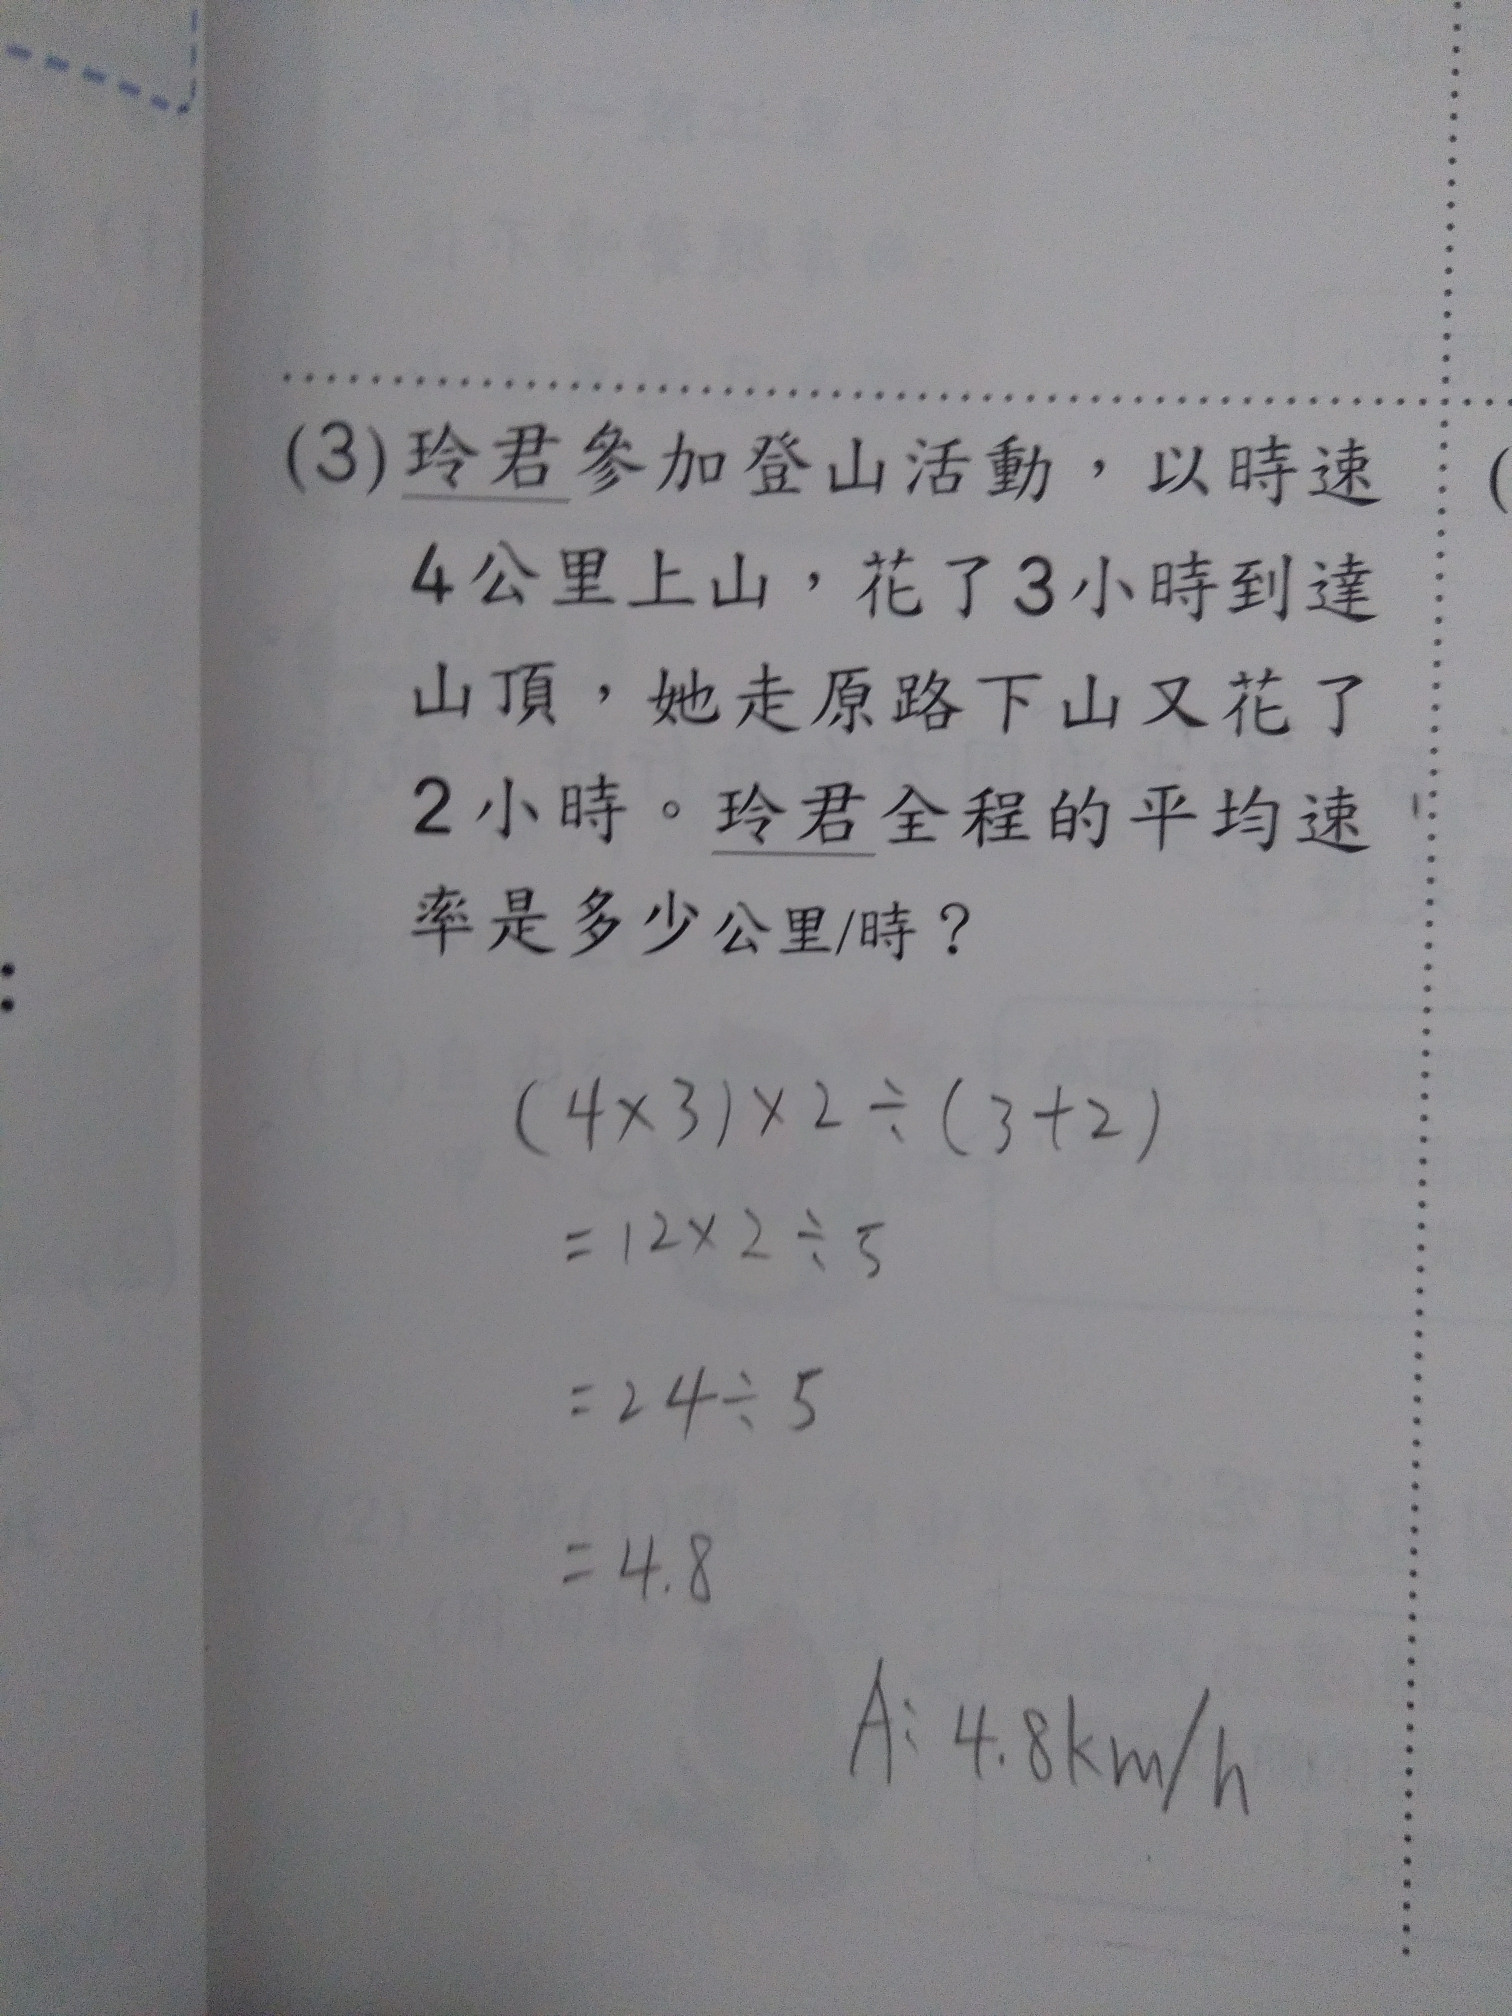 (3)玲君參加登山活動，以時速
4公里上山，花了3小時到達
山頂，她走原路下山又花了
2小時。玲君全程的平均速
率是多少公里/時？
(4×3)×2÷(3+2)
=12×2÷5
=24÷5
=4.8
A:4.8km/h